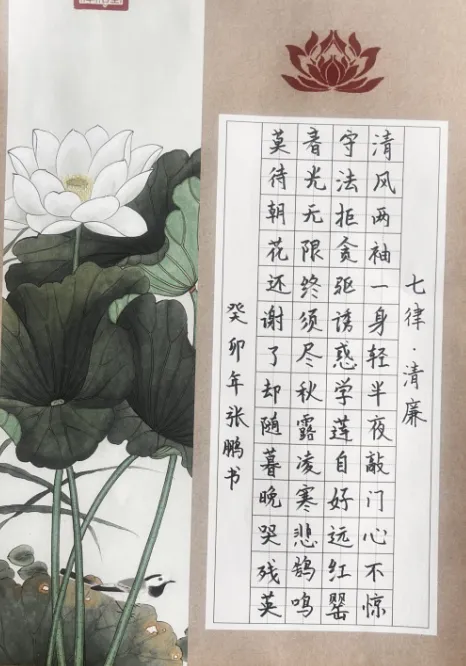 七律·清廉
清风两袖一身轻半夜敲门心不惊
守法拒贪驱诱惑学莲自好远红罂
春光无限终须尽秋露凌寒悲鹄鸣
莫待朝花还谢了却随暮晚哭残英
癸卯年张鹏书